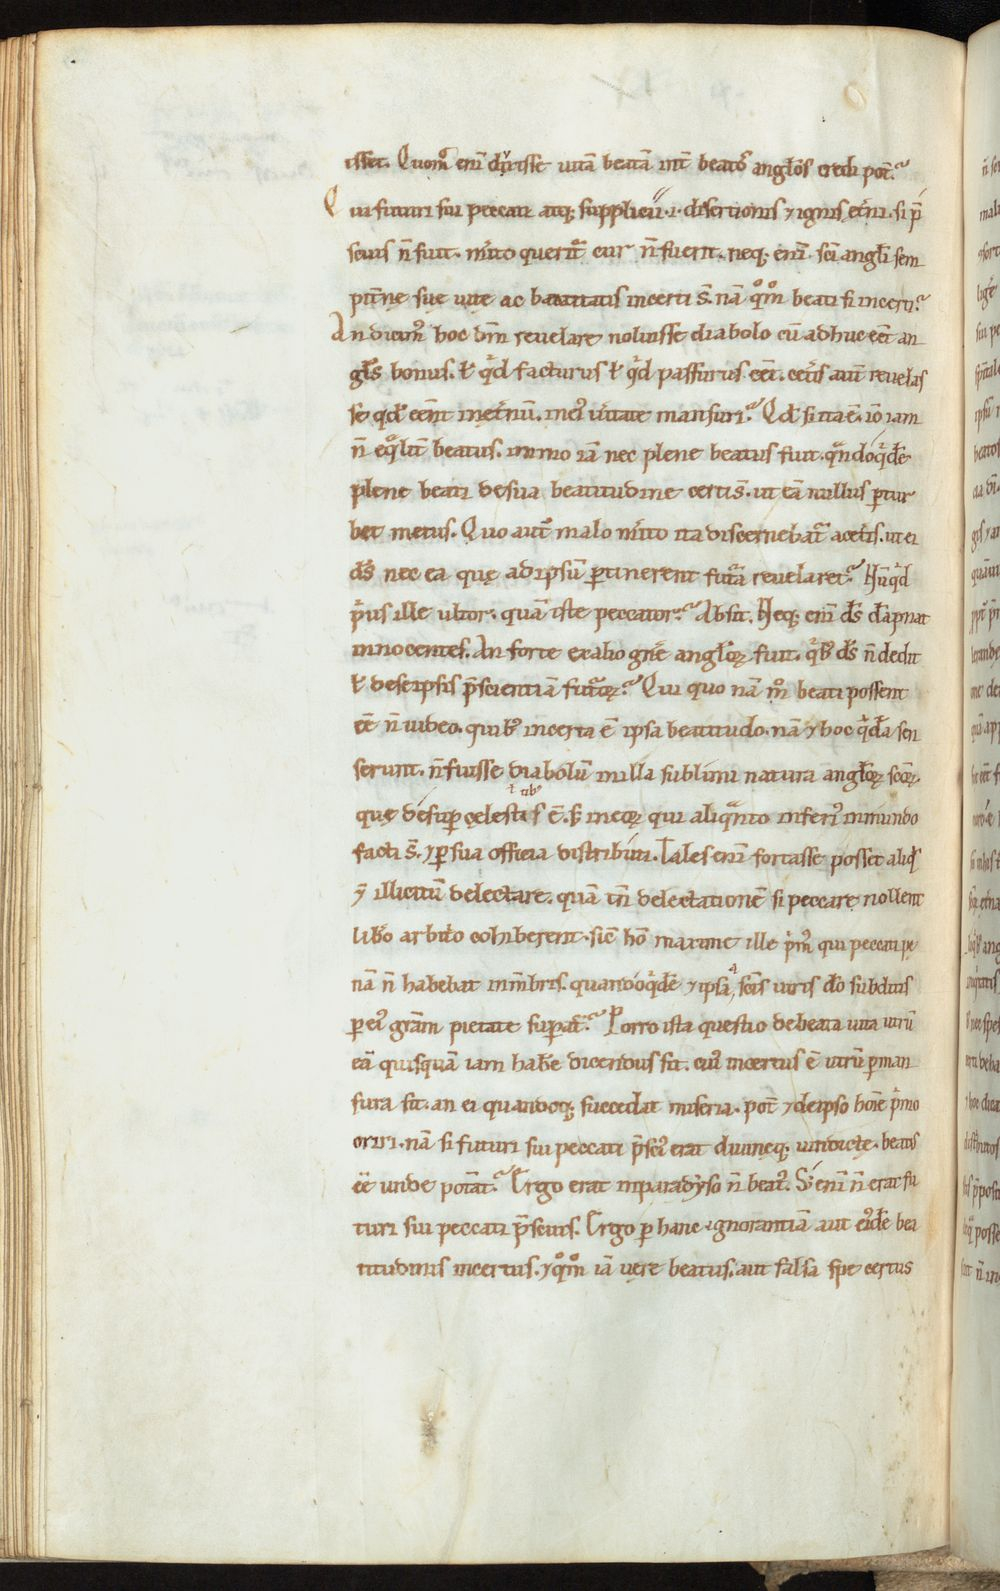 isset. Quom̊ eni̅ duxisse uitā beatā int̅ beatos angłos credi pot̅?
Qui futuri sui peccati atq; supplicii .i. desertionis ⁊ ignis et̅ni. si p̅
scius n̅ fuit. m̅ito querit̅ cur n̅ fuerit. neq; eni̅ sc̅i angłi sem
pit̅ne sue uite ac beatitatis incerti s̅. nā qͦm̊ beati si incerti?
An dicim᷒ hoc dm̅ reuelare noluisse diabolo cū adhuc eet̅ an
głs bonus. ł qͥd facturus ł qͥd passurus eet̅. cet̅is aut̅ reuelas
se qđ eēnt in et̅nū. in ei᷒ u̅itate mansuri? Qđ si ita ē. iō iam
n̅ eqͣlit̅ beatus. immo iā nec plene beatus fuit. qͣndoqͥdē
plene beati de sua beatitudine certi s̅. ut eā nullus ꝑtur
bet metus. Quo aut̅ malo m̅ito ita discernebat̅ a cet̅is. ut ei
ds̅ nec ea quę ad ipsū ꝑtinerent futͣa reuelaret? Nūqͥd
pͥus ille ultor. quā iste peccator? Absit. Neq; eni̅ ds̅ dāpnat
innocentes. An forte ex alio gn̅e angłoꝝ fuit. qͥb᷒ ds̅ n̅ dedit
ł de seipsis p̅scientiā futͣoꝝ? Qui quo nā m̊ beati possent
eē n̅ uideo. quib᷒ incerta ē ipsa beatitudo. nā ⁊ hoc qͥdā sen
serunt. n̅ fuisse diabolū in illa sublimi natura angłoꝝ sc̅oꝝ.
quę desuꝑ celesti s̅ ē. s̅ in eoꝝ qui aliqͣnto inferi᷒ in mundo
facti s̅. ⁊ ꝑ sua officia distributi. Tales eni̅ fortasse posset aliqͥd
⁊ illicitū delectare. quā tn̅ delectationē si peccare nollent
lib̅o arbit̅o cohiberent. sic̅ hō maxime ille pͥm᷒ qui peccati pe
nā n̅ habebat in m̅bris. quandoqͥdē ⁊ ipsa sc̅is uiris do̅ subditis
ꝑ ei᷒ gr̅am pietate suꝑat̅? Porro ista questio de beata uita utrū
eā quisquā iam habē dicendus sit. cui᷒ incertus ē utrū ꝑman
sura sit. an ei quandoq; succedat miseria. pot̅ ⁊ de ipso hoi̅e pͥmo
oriri. nā si futuri sui peccati p̅sci᷒ erat diuineq; uindicte. beatis
eē unde potāt? Ergo erat in paradyso n̅ beat᷒. S; eni̅ n̅ erat fu
turi sui peccati p̅scius. Ergo ꝑ hanc ignorantiā aut ei᷒dē bea
titudinis incertus. ⁊ qͦm̊ iā uere beatus. aut falsa spe certus